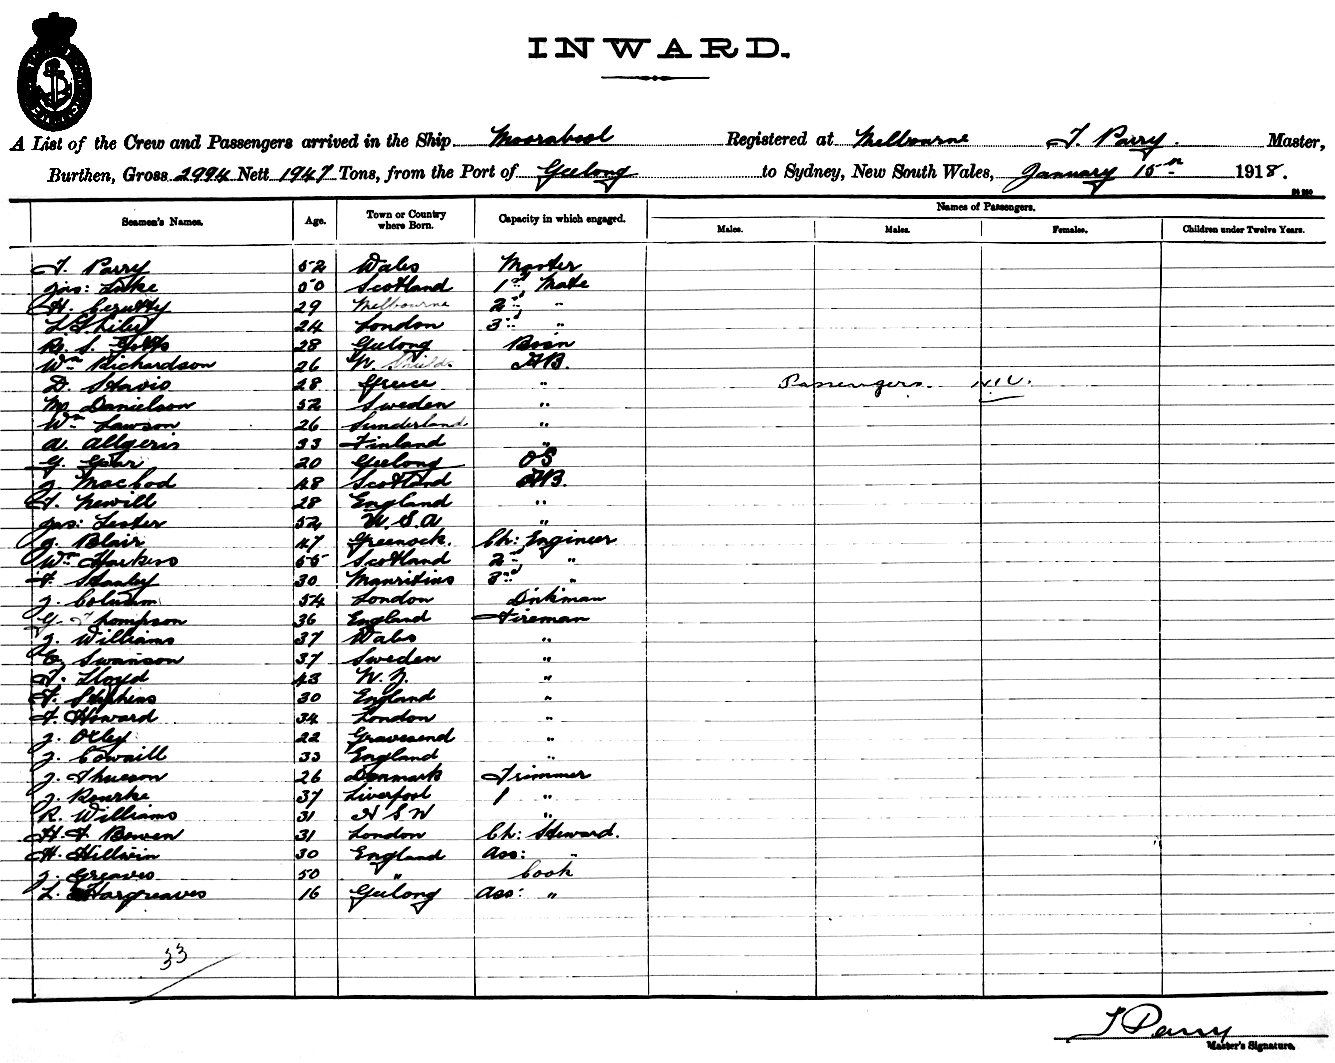 INWARD.
A List of the Crew and Passengers arrived in the Ship Moorabool Registered at Melbourne T. Parry. Master,
Burthen, Gross 2994 Nett 1947 Tons, from the Port of Geelong to Sydney, New South Wales, January 15th 1918.
Names of Passengers.
Seamen's Names. Age. Town or Country where Born. Capacity in which engaged. Males. Males. Females. Children under Twelve Years.
T. Parry 52 Wales Master
Jas: Luke 50 Scotland 1st Mate
H. 29 Melbourne 2nd "
24 London 3rd "
R. S. 28 Geelong Bosn
Wm Richardson 26 N. Shields AB.
D. 28 Greece "
Passengers. NIL.
M. Danielson 52 Sweden "
Wm Lawson 26 Sunderland "
A. Allgeris 33 Finland "
G. 20 Geelong OS
J. Macleod 48 Scotland AB.
T. Newill 28 England "
Jas: Lester 52 U.S.A "
J. Blair 47 Greenock. Ch: Engineer
Wm Harkiss 55 Scotland 2nd "
F. Stanley 30 Mauritius 3rd "
J. 54 London Dnkman
G. Thompson 36 England Fireman
J. Williams 37 Wales "
C. Swanson 37 Sweden "
T. Lloyd 43 N. Z. "
F. Stephens 30 England "
F. Howard 34 London "
J. Oxley 22 Gravesend "
J. 33 England "
J. Thueson 26 Denmark Trimmer
J. Rourke 37 Liverpool "
R. Williams 31 N S W "
H. F Bowen 31 London Ch: Steward.
H. Hillwin 30 England Ass: "
J. Greaves 50 " Cook
L. Hargreaves 16 Geelong Ass: "
33
T Parry
Master's Signature.